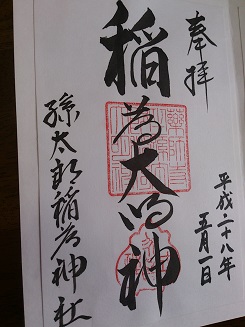 奉拝
平成二十八年
五月一日
稲荷大明神
孫太郎稲荷神社